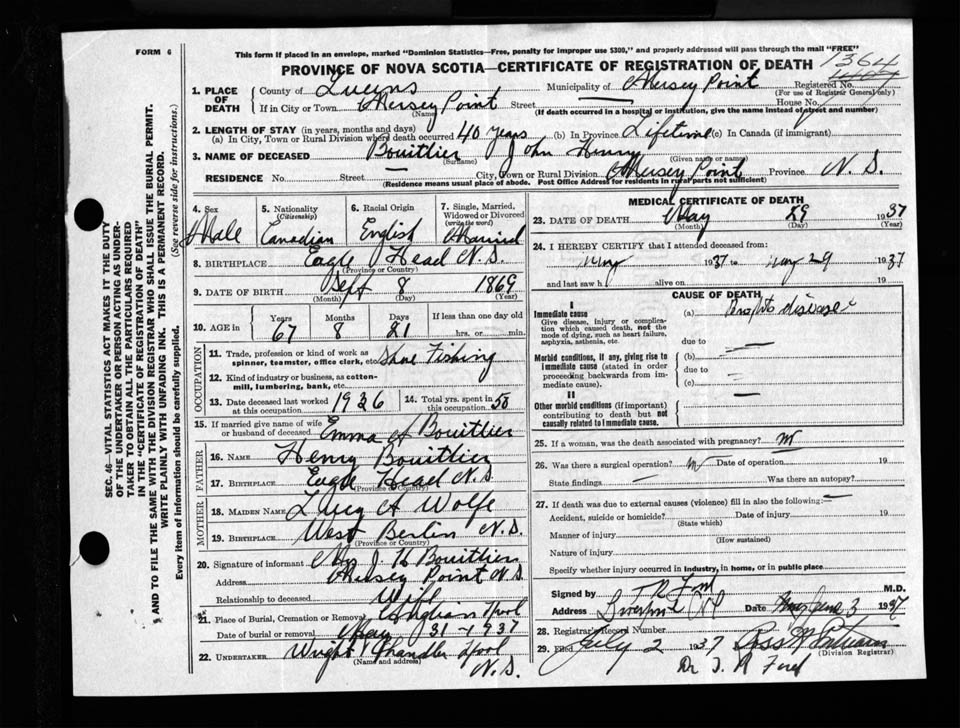 FORM 6
This form if placed in an envelope, marked "Dominion Statistics—Free, penalty for improper use $300," and properly addressed will pass through the mail "FREE"
PROVINCE OF NOVA SCOTIA—CERTIFICATE OF REGISTRATION OF DEATH
1364
1. PLACE OF DEATH County of Queens Municipality of Mersey Point Registered No.
(For use of Registrar General only)
If in City or Town Mersey Point Street House No.
(Name) (If death occurred in a hospital or institution, give the name instead of street and number)
2. LENGTH OF STAY (in years, months and days)
(a) In City, Town or Rural Division where death occurred 40 years (b) In Province Lifetime (c) In Canada (if immigrant)
3. NAME OF DECEASED Bouitlier John Henry
(Surname) (Given name or names)
RESIDENCE No. Street — City, Town or Rural Division Mersey Point Province N.S.
(Residence means usual place of abode. Post Office Address for residents in rural parts not sufficient)
4. Sex Male
5. Nationality (Citizenship) Canadian
6. Racial Origin English
7. Single, Married, Widowed or Divorced (write the word) Married
8. BIRTHPLACE Eagle Head N.S.
(Province or Country)
9. DATE OF BIRTH Sept 8 1869
(Month) (Day) (Year)
10. AGE in Years 67 Months 8 Days 21 If less than one day old hrs. or min.
OCCUPATION
11. Trade, profession or kind of work as spinner, teamster, office clerk, etc. Shore Fishing
12. Kind of industry or business, as cotton-mill, lumbering, bank, etc.
13. Date deceased last worked at this occupation 1936
14. Total yrs. spent in this occupation 50
15. If married give name of wife or husband of deceased Emma A Bouitlier
FATHER
16. Name Henry Bouitlier
17. Birthplace Eagle Head N.S.
(Province or Country)
MOTHER
18. Maiden Name Lucy A Wolfe
19. Birthplace West Berlin N.S.
(Province or Country)
20. Signature of informant Mrs J H Bouitlier
Address Mersey Point N.S.
Relationship to deceased Wife
21. Place of Burial, Cremation or Removal
Date of burial or removal May 31 - 1937
22. UNDERTAKER Wright Chandler
(Name and address)
N.S.
MEDICAL CERTIFICATE OF DEATH
23. DATE OF DEATH May 29 1937
(Month) (Day) (Year)
24. I HEREBY CERTIFY that I attended deceased from:
May 1937 to May 29 1937
and last saw h alive on 19
CAUSE OF DEATH
I
Immediate cause
Give disease, injury or complication which caused death, not the mode of dying, such as heart failure, asphyxia, asthenia, etc.
(a) disease
due to —
Morbid conditions, if any, giving rise to immediate cause (stated in order proceeding backwards from immediate cause).
(b)
due to —
(c)
II
Other morbid conditions (if important) contributing to death but not causally related to immediate cause.
25. If a woman, was the death associated with pregnancy?
26. Was there a surgical operation? Date of operation 19
State findings Was there an autopsy?
27. If death was due to external causes (violence) fill in also the following:—
Accident, suicide or homicide? Date of injury 19
(State which)
Manner of injury
(How sustained)
Nature of injury
Specify whether injury occurred in industry, in home, or in public place
Signed by M.D.
Address Liverpool Date June 3 1937
28. Registrar's Record Number
29. Filed July 2 1937
(Division Registrar)
Dr. J. R Ford
SEC. 46—VITAL STATISTICS ACT MAKES IT THE DUTY
OF THE UNDERTAKER OR PERSON ACTING AS UNDER-
TAKER TO OBTAIN ALL THE PARTICULARS REQUIRED
IN THE "CERTIFICATE OF REGISTRATION OF DEATH"
AND TO FILE THE SAME WITH THE DIVISION REGISTRAR WHO SHALL ISSUE THE BURIAL PERMIT.
WRITE PLAINLY WITH UNFADING INK. THIS IS A PERMANENT RECORD.
Every item of information should be carefully supplied. (See reverse side for instructions.)